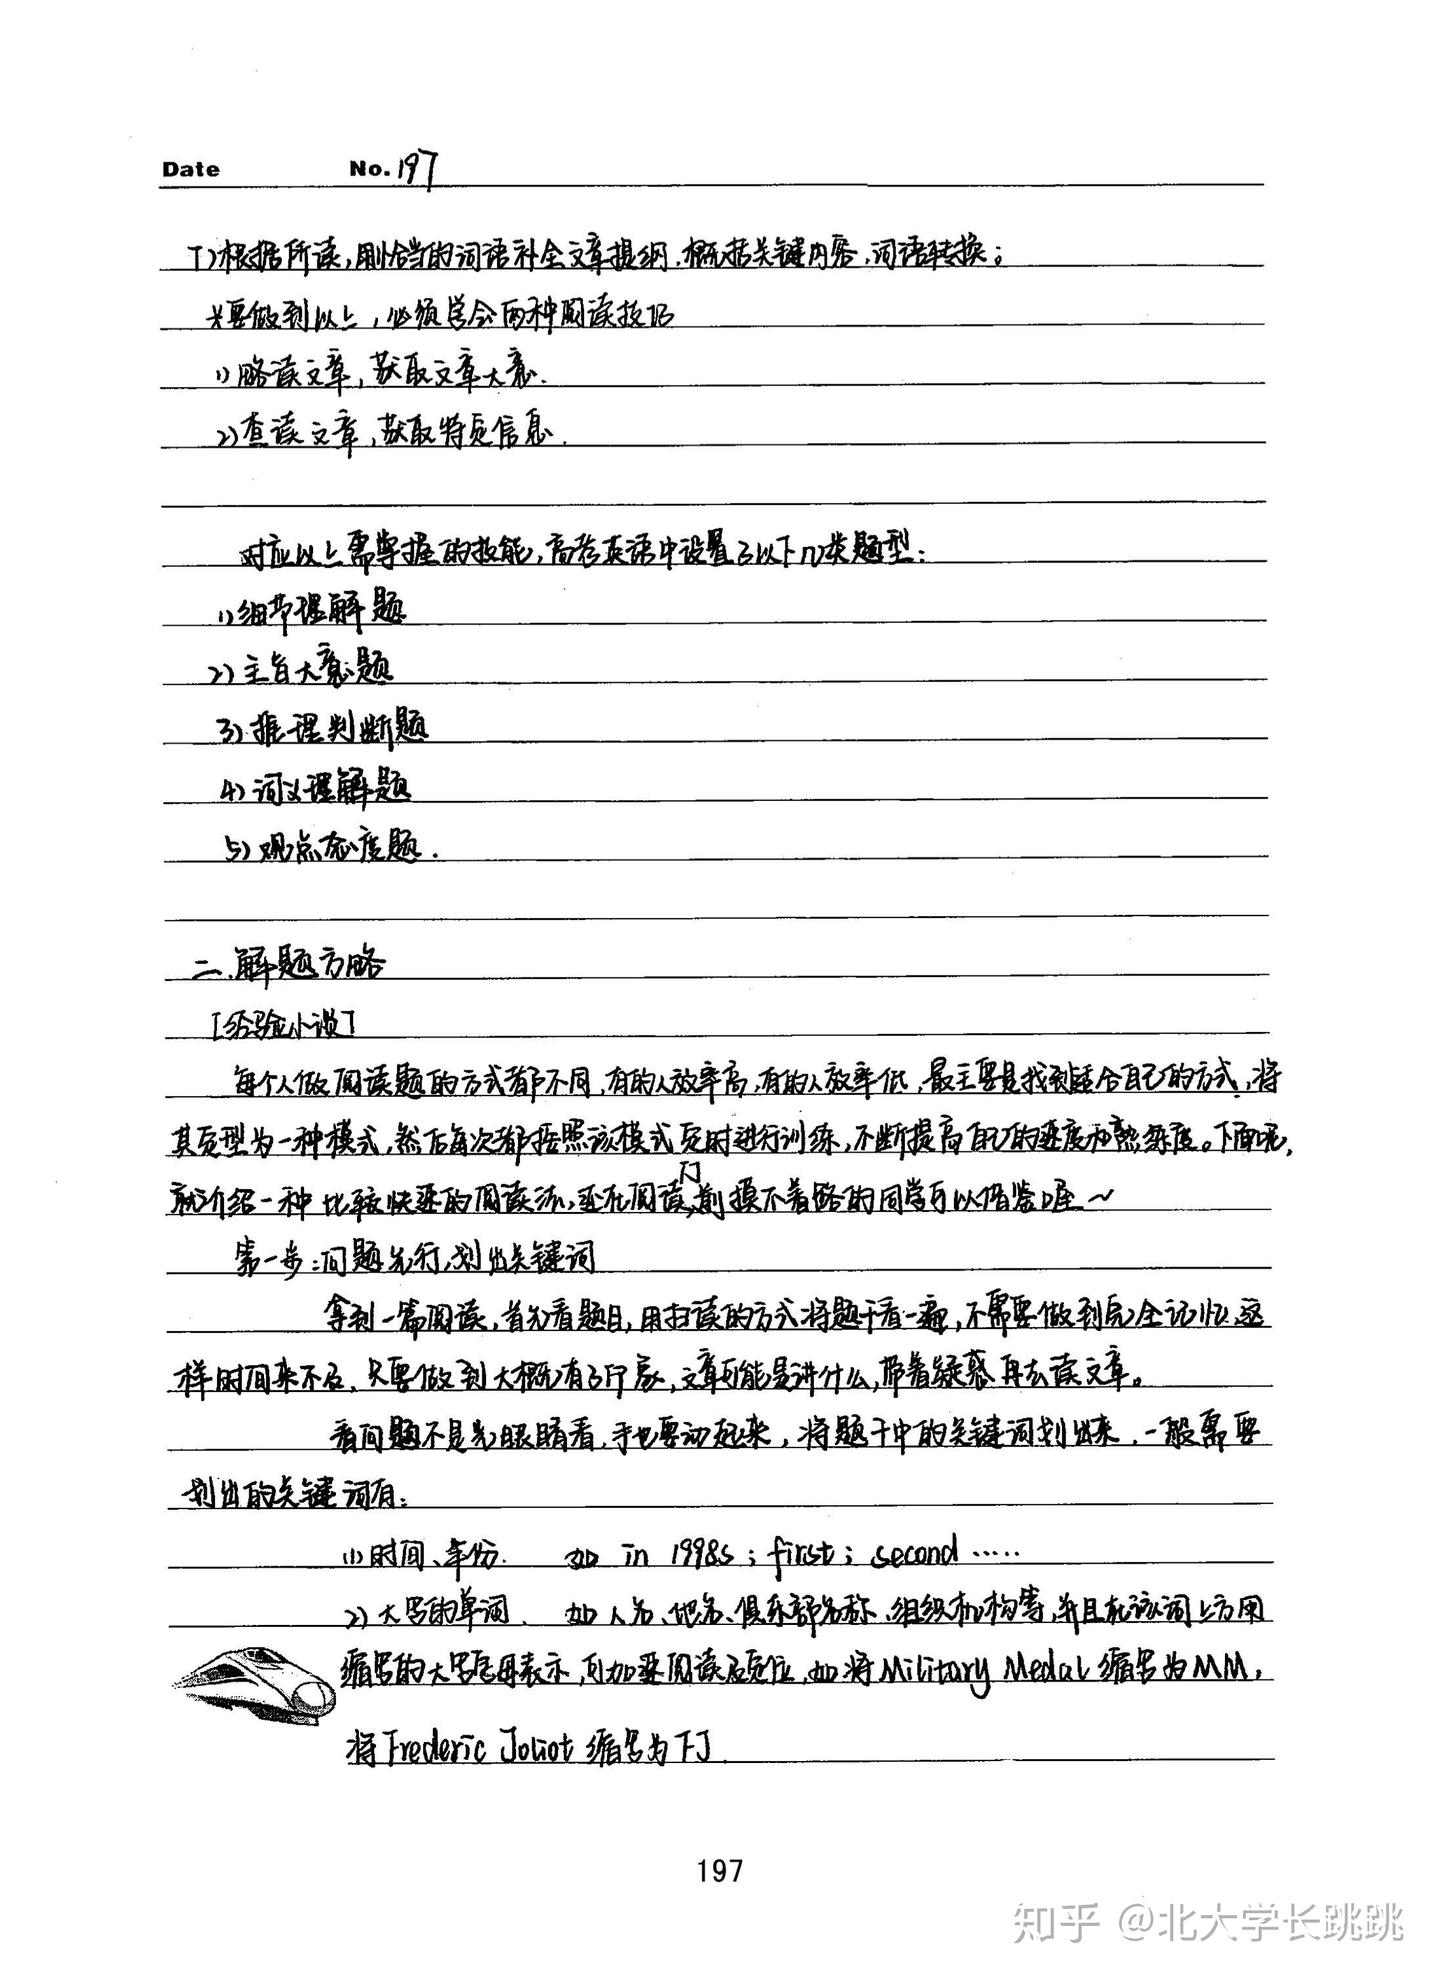 Date No. 197
7)根据所读,用恰当的词语补全文章提纲.概括关键内容,词语转换;
*要做到以上,必须学会两种阅读技巧
1)略读文章,获取文章大意.
2)查读文章,获取特定信息.
对应以上需掌握的技能,高考英语中设置了以下几类题型:
1)细节理解题
2)主旨大意题
3)推理判断题
4)词义理解题
5)观点态度题.
二.解题方略
[经验小谈]
每个人做阅读题的方式都不同,有的人效率高,有的人效率低,最主要是找到适合自己的方式,将
其定型为一种模式,然后每次都按照该模式定时进行训练,不断提高自己的速度和熟练度。下面呢,
就介绍一种比较快速的阅读法,还在阅读门前摸不着路的同学可以借鉴喔~
第一步:问题先行,划出关键词
拿到一篇阅读,首先看题目,用扫读的方式将题干看一遍,不需要做到完全记忆,这
样时间来不及,只要做到大概有了印象,文章可能是讲什么,带着疑惑再去读文章。
看问题不是光眼睛看,手也要动起来,将题干中的关键词划出来.一般需要
划出的关键词有:
1)时间、年份. 如 in 1998s; first; second ……
2)大写的单词. 如人名、地名、俱乐部名称、组织机构等,并且在该词上方用
缩写的大写字母表示,可加速阅读及定位,如将Military Medal缩写为MM,
将Frederic Joliot缩写为FJ.
197
知乎 @北大学长跳跳